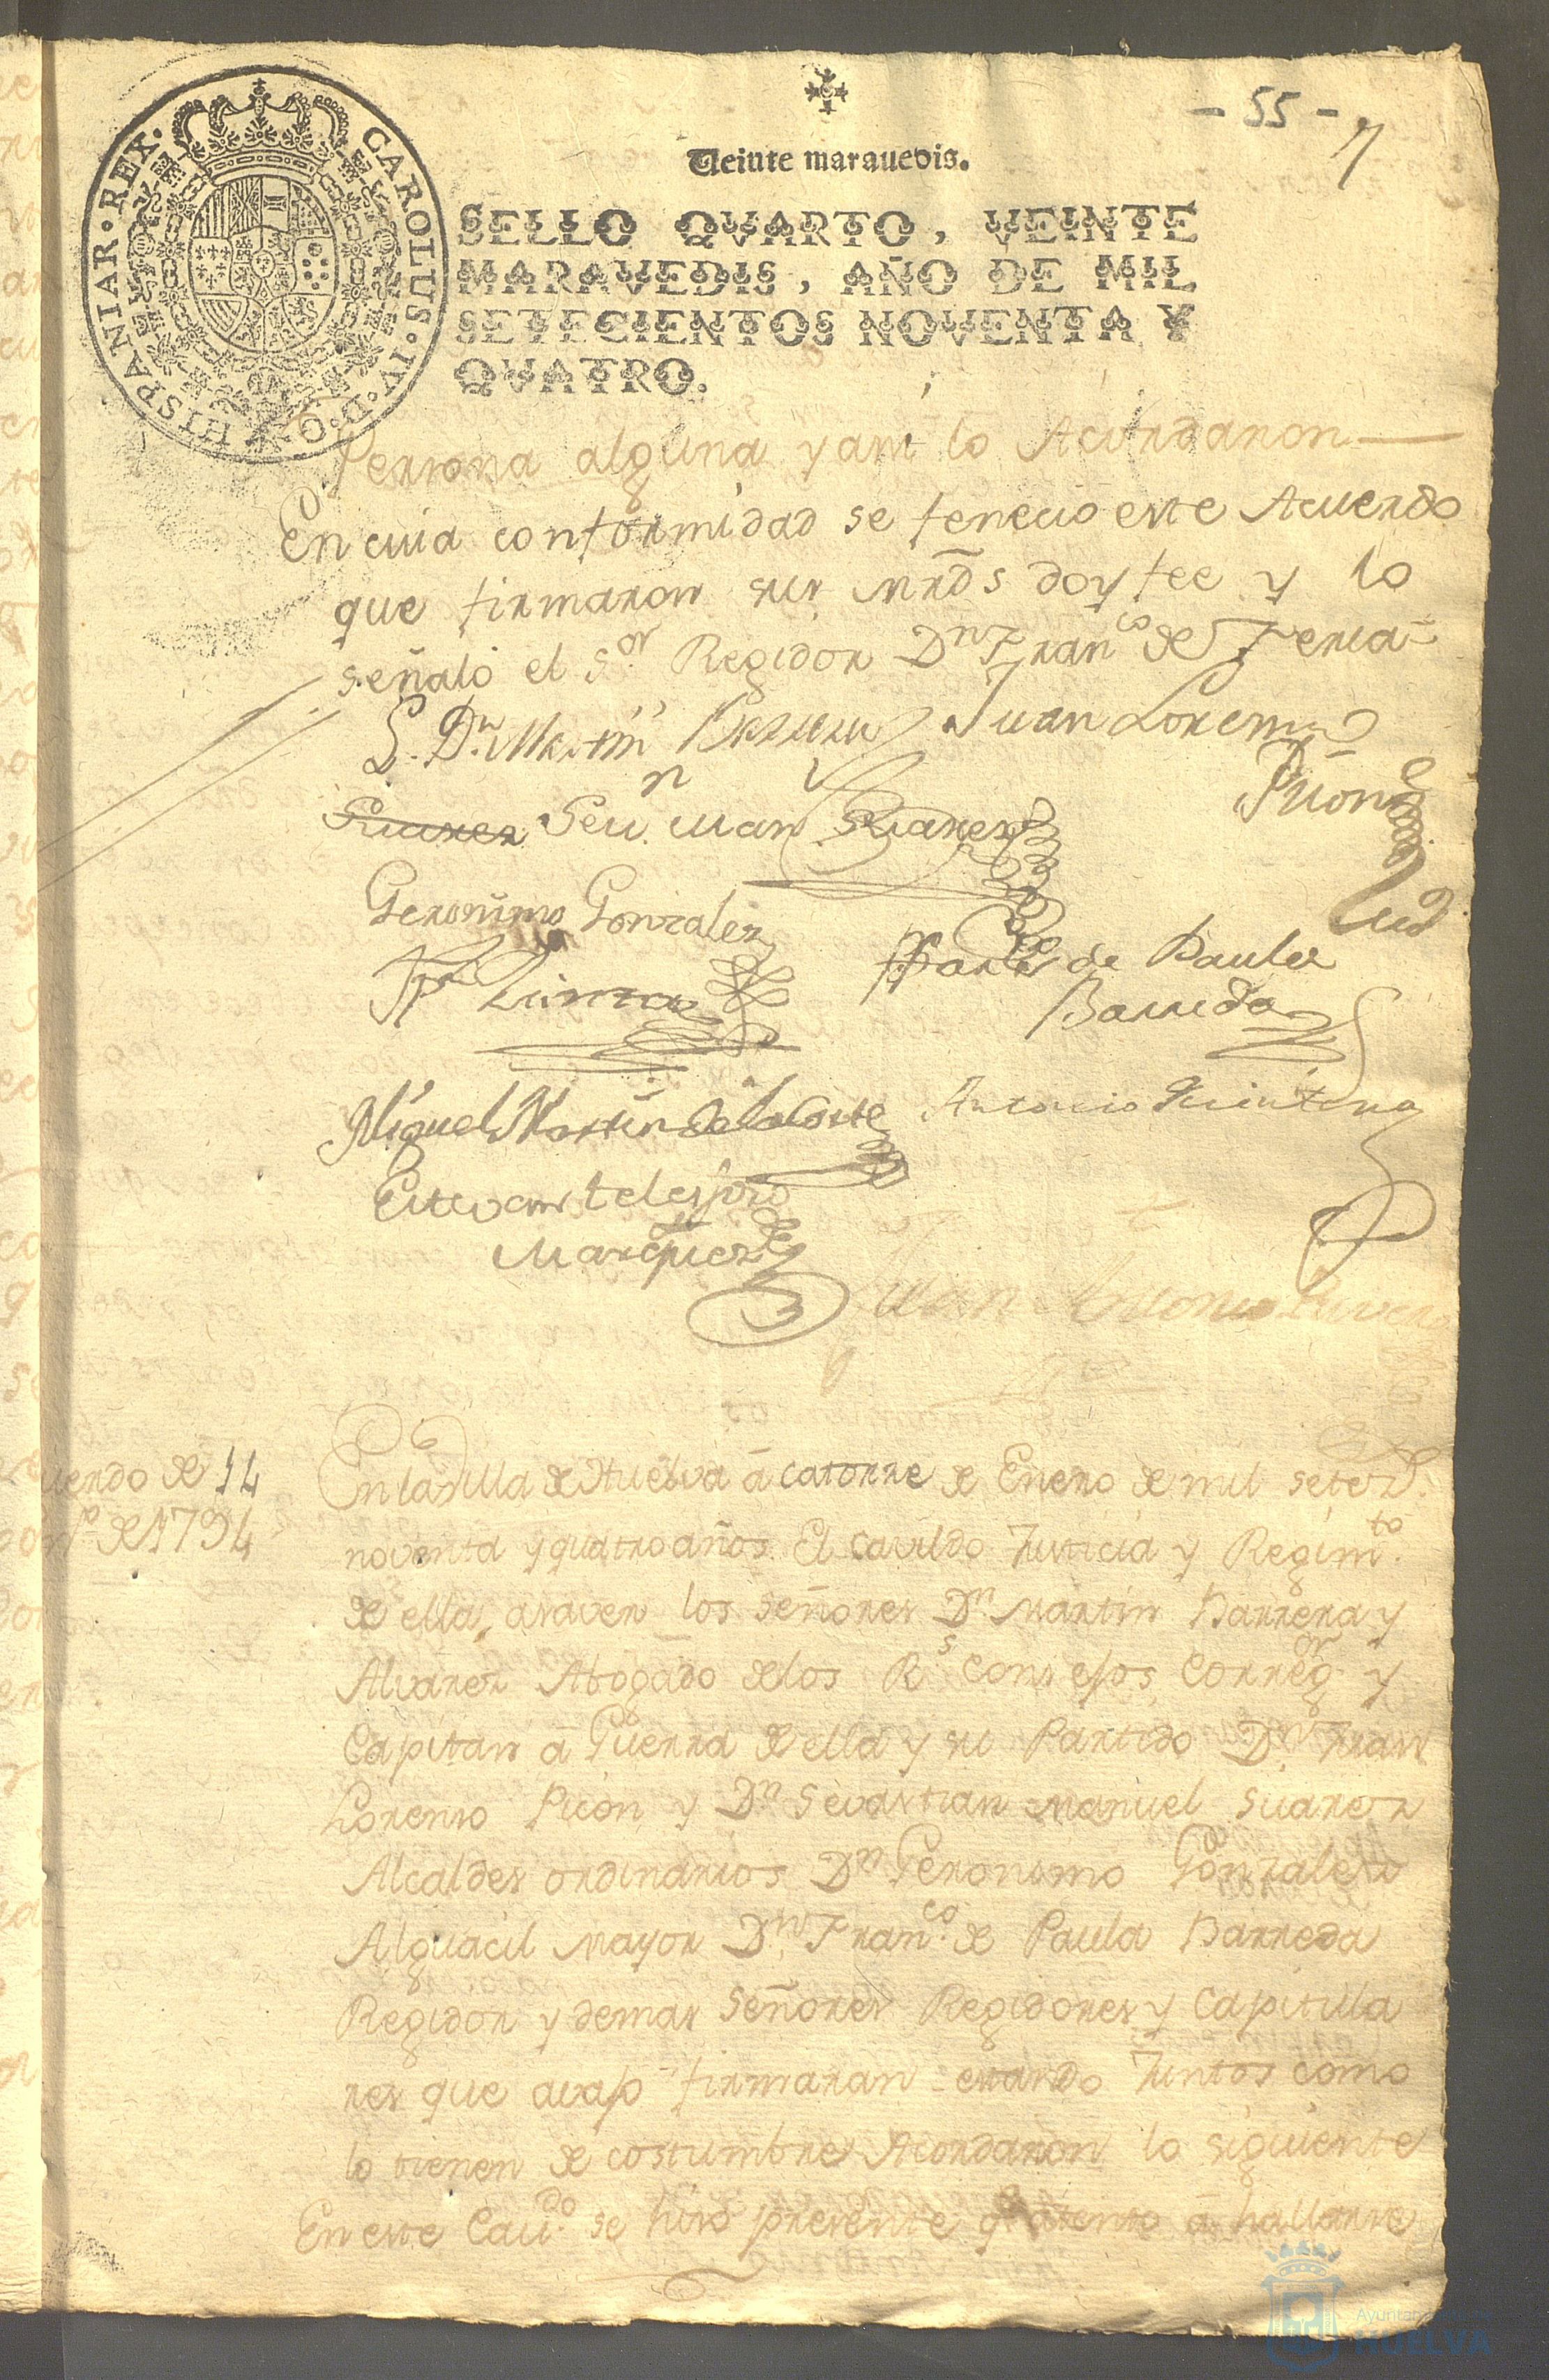 - 55 - 7
Veinte marauedis.
CAROLUS · IV · D · G · HISPANIAR · REX ·
SELLO QVARTO, VEINTE
MARAVEDIS, AÑO DE MIL
SETECIENTOS NOVENTA Y
QVATRO.
Persona alguna y asi lo Acordaron
En cuia conformidad se fenecio este Acuerdo
que firmaron sus mrds doy fee y lo
señaló el Sor Regidor Dn Franco de
L. Dn Martin Juan Lorenzo
Picon
Suarez Sevn. Man Suarez
Geronimo Gonzalez
de Paula
Barreda
Miguel Martin de la Corte Antonio Quintana
Estevan telesforo
Marquez
Juan Antonio
uerdo de 14
de 1794
En la Villa de Huelva á catorze de Enero de mil setezs.
noventa y quatro años. El Cavildo Justicia y Regimto.
de ella, asaver los señores Dn Martin Barrera y
Alvarez Abogado de los Rs Consejos Corregor y
Capitan á Guerra de ella y su Partido Dn Juan
Lorenso Picón y Dn Sevastian Manuel Suarez
Alcaldes ordinarios Dn Geronimo Gonzalez
Alguacil mayor Dn Franco. de Paula Barreda
Regidor y demas Señores Regidores y Capitula
res que avajo firmaran estando Juntos como
lo tienen de costumbre Acordaron lo siguiente
En este Cavdo. se hizo presente q atento á hallarse
Ayuntamiento de
HUELVA